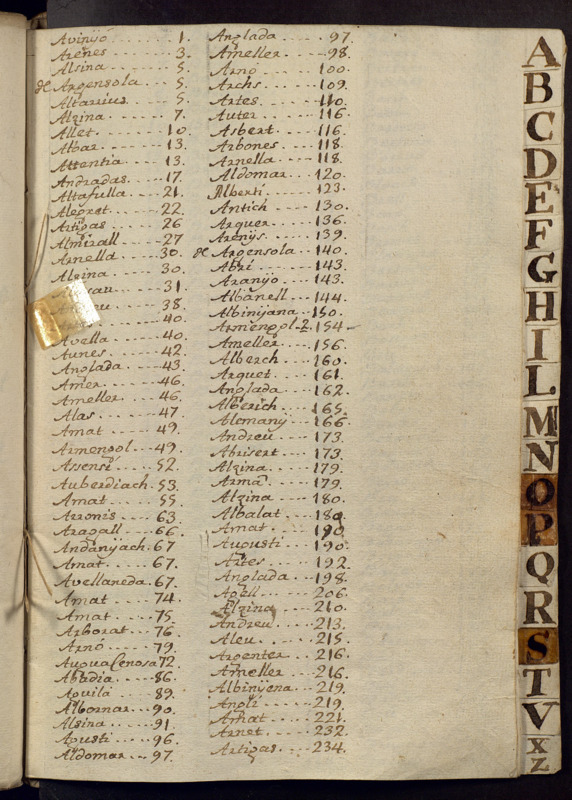 Avinyó 1.
Arenes 3.
Alsina 5.
de Argensola 5.
Altarrius 5.
Alzina 7.
Allet 10.
Albar 13.
Attentia 13.
Andradas 17.
Altafulla 21.
Alegret 22.
Artigas 26
Almirall 27
Arnella 30.
Alzina 30.
31.
38.
40.
Avella 40.
Aunes 42.
Anglada 43.
Amer 46.
Ameller 46.
Alas 47
Amat 49.
Armengol 49.
Assensi 52.
Auberdiach 53.
Amat 55.
Arronis 63.
Aragall 66.
Andanyach 67
Amat 67.
Avellaneda 67.
Amat 74.
Amat 75.
Arborat 76.
Arnó 79.
72.
Abadia 86.
Aguilá 89.
Albornar 90.
Alsina 91.
Agusti 96.
Aldomar 97.
Anglada 97.
Ameller 98.
Arno 100.
Archs 109.
Artes 110.
Auter 116.
Asbert 116.
Arbones 118.
Arnella 118.
Aldomar 120.
Alberti 123.
Antich 130.
Arquer 136.
Arenys 139.
de Argensola 140.
Abri 143.
Aranyo 143.
Albanell 144.
Albinyana 150.
Armengol 2 154
Ameller 156.
Alberch 160.
Arquet 161.
Anglada 162.
Alberich 165.
Alemany 166
Andreu 173.
Abrisert 173.
Alzina 179.
Arma 179.
Alzina 180.
Albalat 189.
Amat 190.
Augusti 190.
Artes 192.
Anglada 198.
Agell 206.
Alzina 210.
Andreu 213.
Aleu 215.
Argenter 216.
Ameller 216.
Albinyena 219.
Angli 219.
Amat 221.
Arnet 232.
Artigas 234.
A
B
C
D
E
F
G
H
I
L
M
N
O
P
Q
R
S
T
V
X
Z